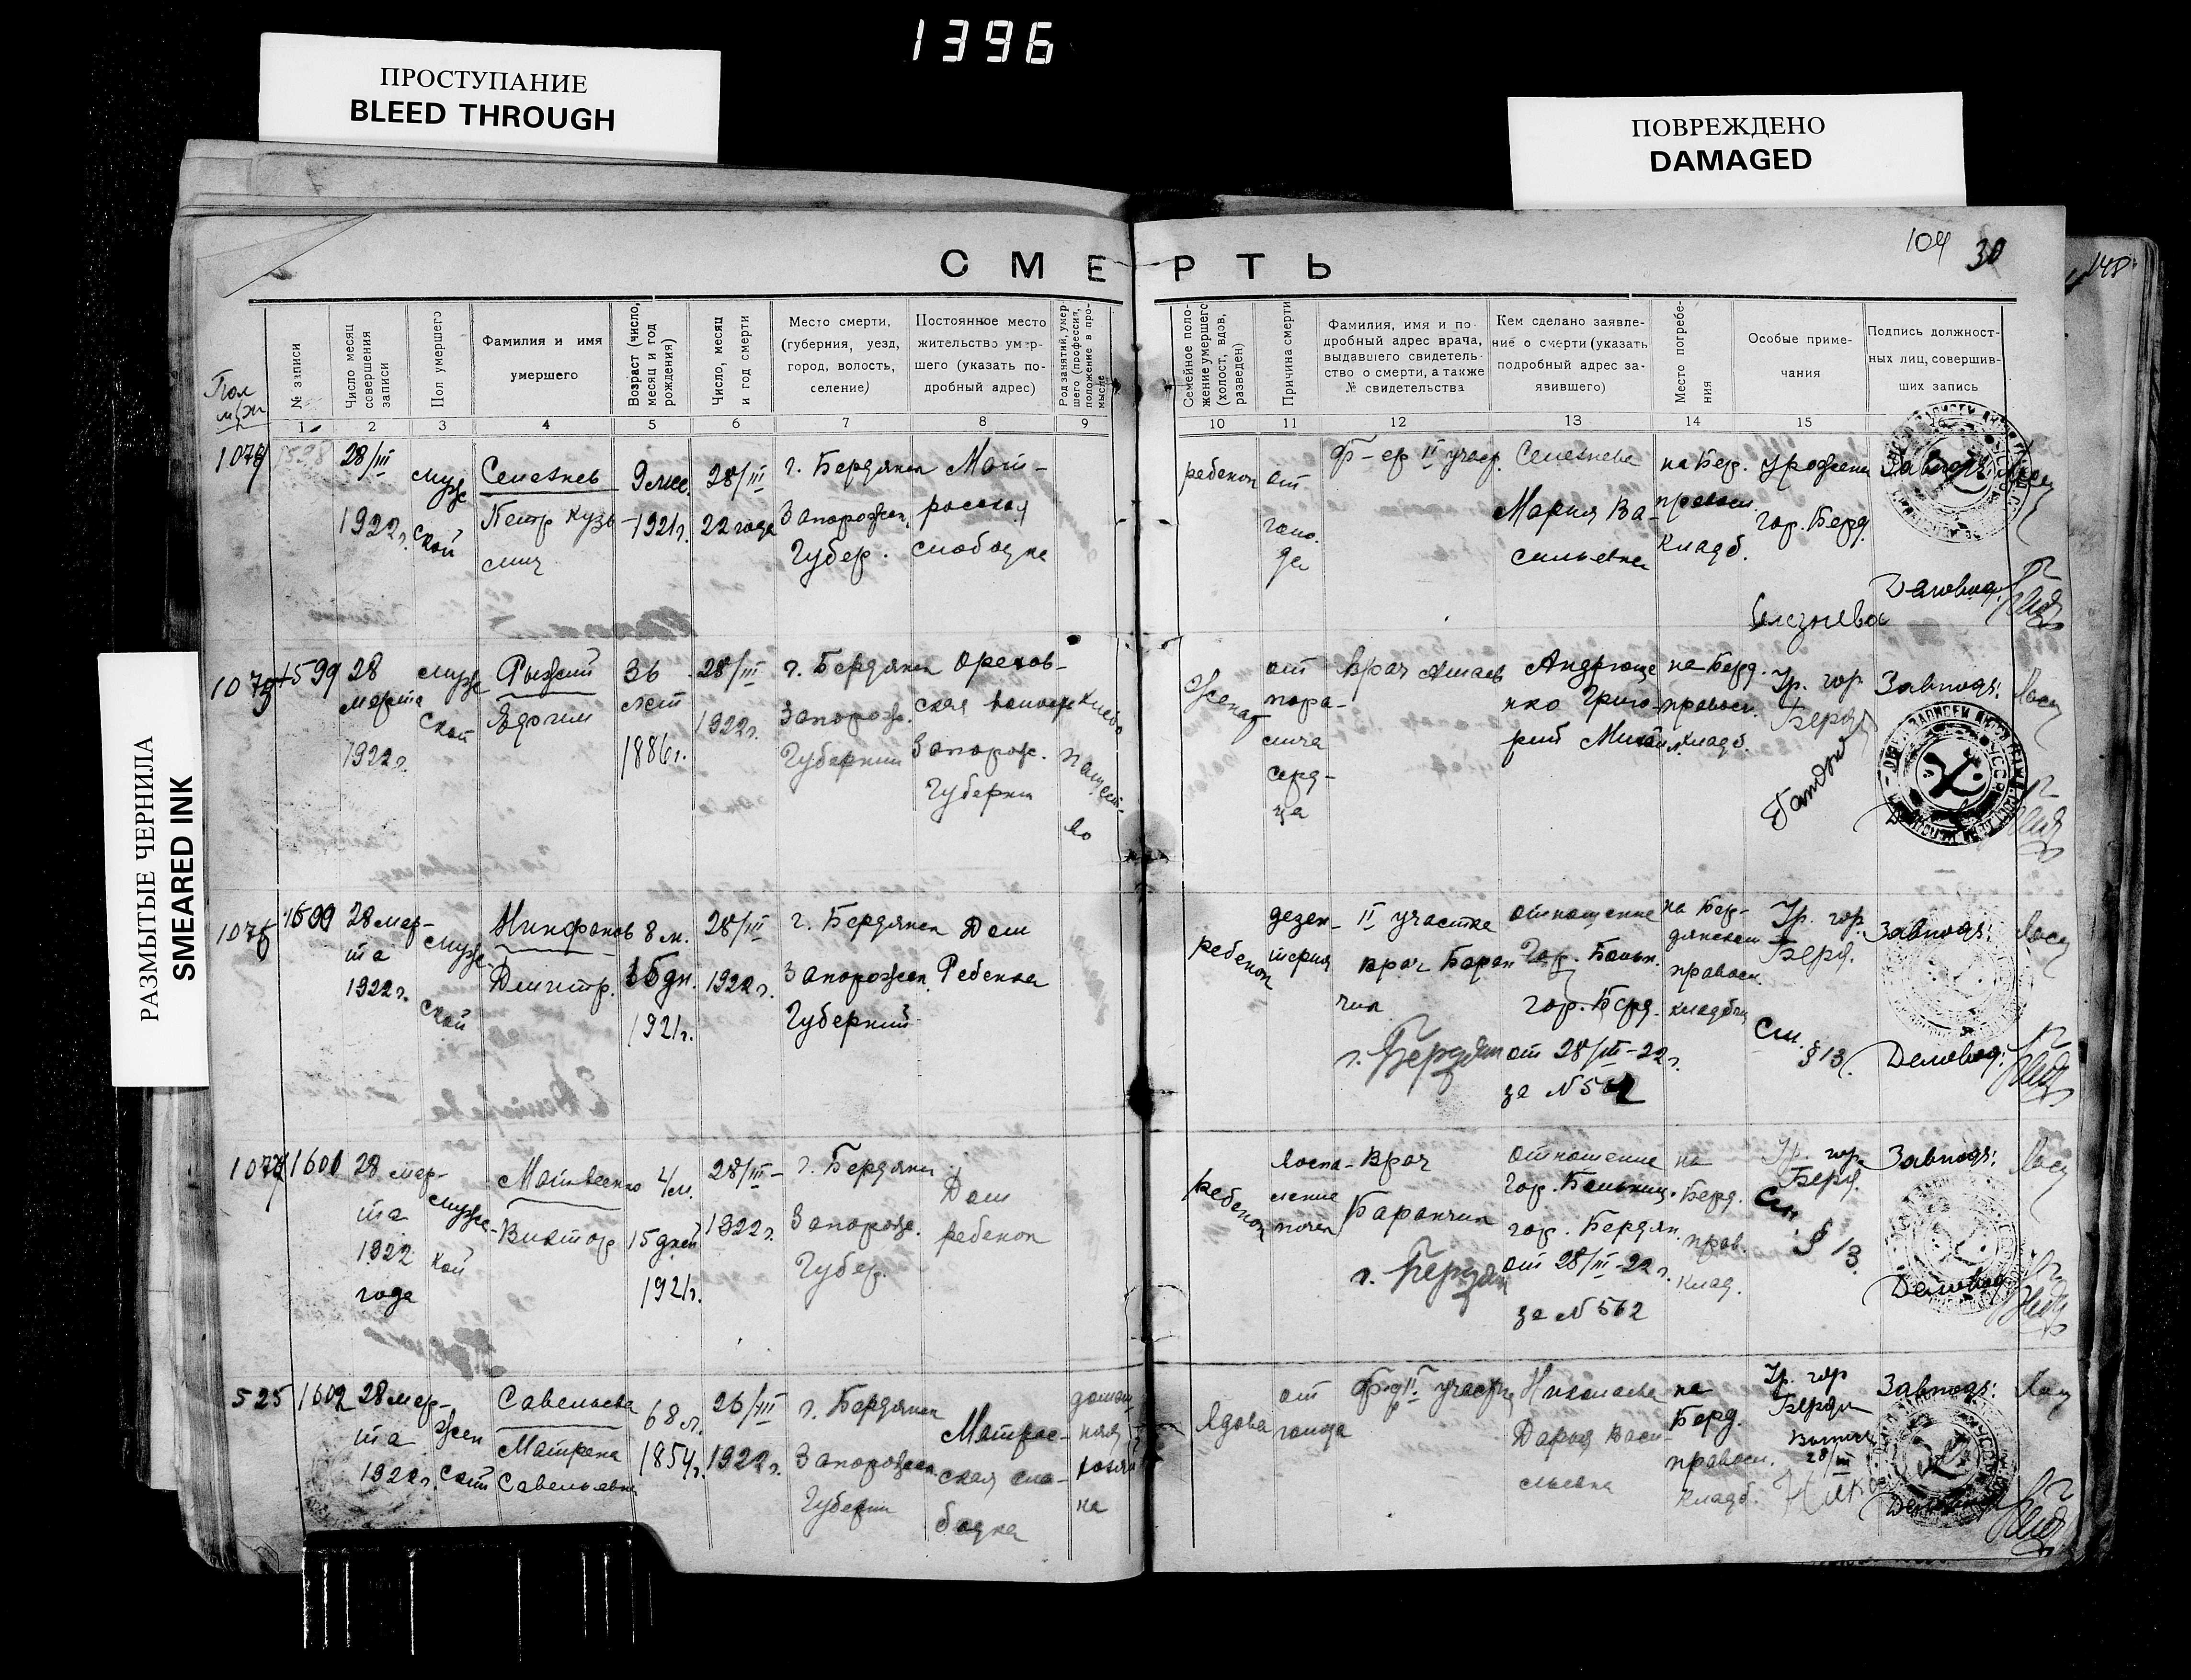 1396
ПРОСТУПАНИЕ
BLEED THROUGH
ПОВРЕЖДЕНО
DAMAGED
РАЗМЫТЫЕ ЧЕРНИЛА
SMEARED INK
104 30
СМЕРТЬ
Пол
м/ж
№ записи
Число месяц
совершения
записи
Пол умершего
Фамилия и имя
умершего
Возраст (число,
месяц и год
рождения)
Число, месяц
и год смерти
Место смерти,
(губерния, уезд,
город, волость,
селение)
Постоянное место
жительство умер-
шего (указать по-
дробный адрес)
Род занятий, умер
шего (профессия,
положение в про-
мысле
Семейное поло-
жение умершего
(холост, вдов,
разведен)
Причина смерти
Фамилия, имя и по
дробный адрес врача,
выдавшего свидетель-
ство о смерти, а также
№ свидетельства
Кем сделано заявле-
ние о смерти (указать
подробный адрес за-
явившего)
Место погребе-
ния
Особые приме-
чания
Подпись должност-
ных лиц, совершив-
ших запись
1 2 3 4 5 6 7 8 9 10 11 12 13 14 15
1598
28/III
1922г.
муж
ской
Селезнев
Петр Кузь
мич
9 мес.
-1921г.
28/III
22 года
г. Бердянск
Запорожск.
Губер.
Мат-
росская
слободка
ребенок
от
голо-
да
Ф-ер II участ.
Селезнева
Мария Ва-
сильевна
на Бер.
правосл.
кладб.
гор. Берд.
Завподз:
Деловод:
Селезнева
1599
28
марта
1922г.
муж
ской
Рыжий
Ефим
36
лет
1886г.
28/III
1922г.
г. Бердянск
Запорож.
Губернии
Орехов-
ская волост
Запорож.
Губерни
Женат
от
пара-
лича
серд-
ца
Врач
Андрюще
нко Григо-
рий Михаил.
на Берд.
правосл.
кладб.
Ур. гор.
Берд
Завподз:
28 мар-
та
1922г.
муж-
ской
Никифоров
Дмитр.
8 м.
1921г.
28/III
1922г.
г. Бердянск
Запорожск.
Губерний
Дом
Ребенка
ребенок
дезен-
терия
II участка
врач Баран
чик
г. Бердян
отношение
Гор. Больн.
гор. Берд.
от 28/III-22г.
за №562
на Бер-
дянском
правосл.
кладбищ
Ур. гор.
Берд.
См. §13.
Завподз:
Деловод:
1601
28 мар-
та
1922
года
муж-
кой
Матвеенко
Виктор
4 м.
15 дней
1921г.
28/III-
1922г.
г. Бердянск
Запорож.
Губер.
Дом
ребенок
ребенок
Воспа-
ление
почек
Врач
Баранчик
г. Бердян
отношение
гор. Больниц.
гор. Бердян.
от 28/III-22г.
за №562
на
Берд.
прав.
клад.
Ур. гор.
Берд.
См. §13.
Завподз:
Деловод
525
1602
28 мар-
та
1922г.
Жен
ский
Савельева
Матрена
Савельевна
68 л.
1854г.
26/III
1922г.
г. Бердянск
Запорожск.
Губерни
Матрос-
ская сло-
бодка
домаш
няя
хозяй
ка
Вдова
от
голода
Ф-р II участк
Николаева
Дарья Васи-
льевна
на
Берд.
правосл.
кладб.
Ур. гор
Бердян
28/III
Завподз: